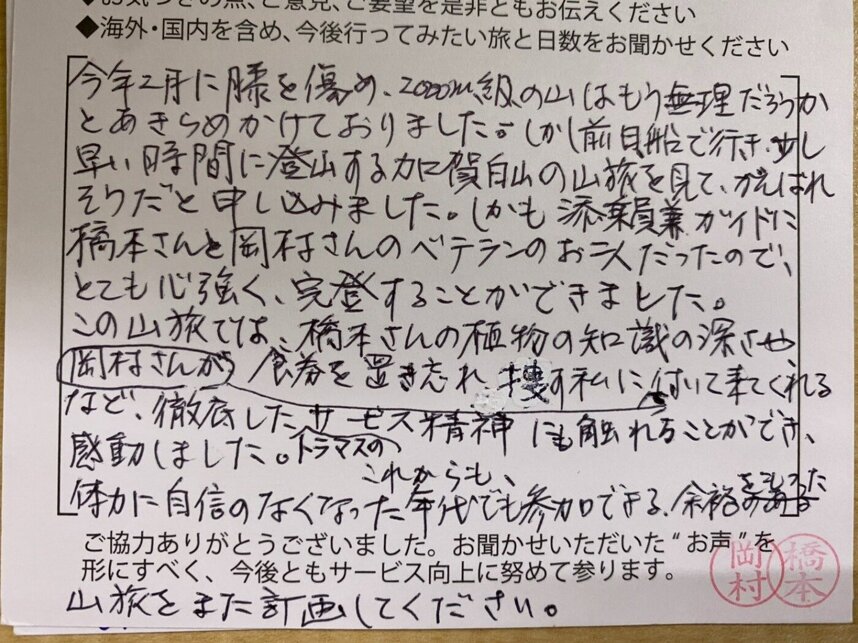 ◆お気づきの点、ご意見、ご要望を是非ともお伝えください
◆海外・国内を含め、今後行ってみたい旅と日数をお聞かせください
今年2月に膝を傷め、2000m級の山はもう無理だろうか
とあきらめかけておりました。しかし前日船で行き、少し
早い時間に登山する加賀白山の山旅を見て、がんばれ
そうだと申し込みました。しかも添乗員兼ガイドに
橋本さんと岡村さんのベテランのお二人だったので、
とても心強く、完登することができました。
この山旅では、橋本さんの植物の知識の深さや、
岡村さんが 食券を置き忘れ 捜す私に付いて来てくれる
など、徹底したサービス精神にも触れることができ、
感動しました。トラマスの
これからも、
体力に自信のなくなった年代でも参加できる、余裕をもった
のある
ご協力ありがとうございました。お聞かせいただいた“お声”を
形にすべく、今後ともサービス向上に努めて参ります。
岡村 橋本
山旅をまた計画してください。